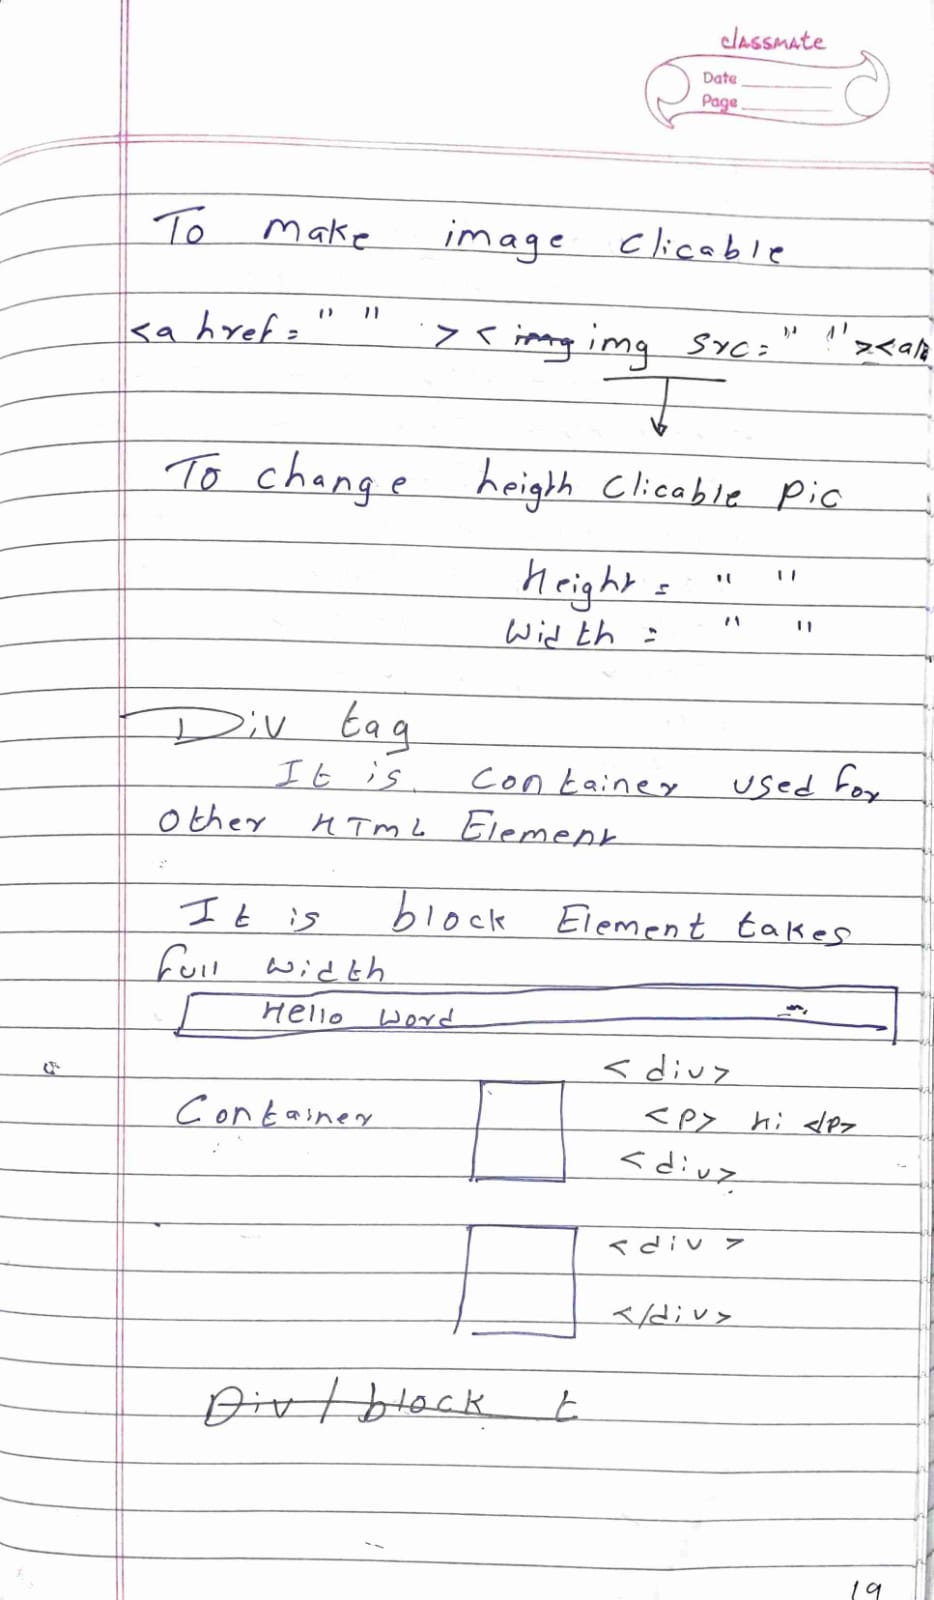 classmate
Date
Page
To make image Clicable
<a href=" " ><img img src=" "><a/>
To change heigth Clicable Pic
Height = " "
Width = " "
Div tag
It is container used for
Other HTML Element
It is block Element takes
full width
Hello Word
<div>
Container <p> Hi </p>
<div>
<div>
</div>
Div / block t
19